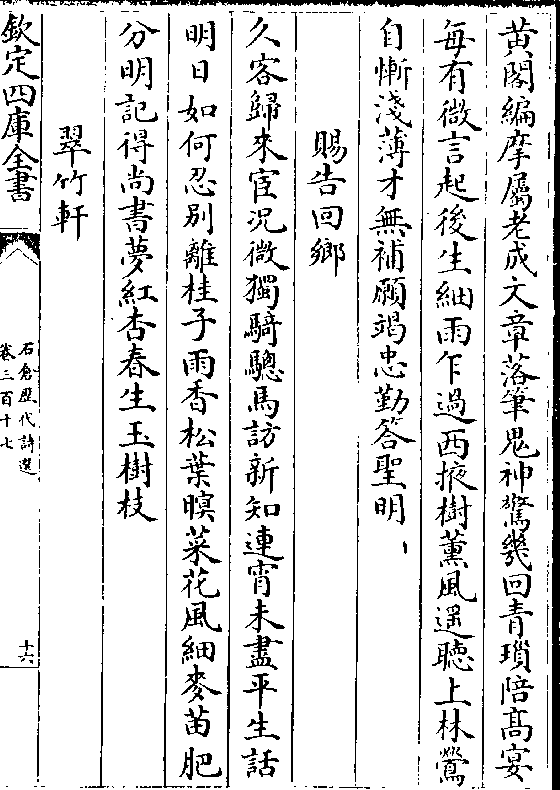 黄閣編摩屬老成文章落筆鬼神驚幾回青瑣陪髙宴
每有微言起後生細雨乍過西掖樹薰風遥聽上林鶯
自慚淺薄才無補願竭忠勤答聖明
賜告回鄉
久客歸來宦況微獨騎驄馬訪新知連宵未盡平生話
明日如何忍别離桂子雨香松葉暝菜花風細麥苗肥
分明記得尚書夢紅杏春生玉樹枝
翠竹軒
欽定四庫全書
石倉歷代詩選
卷三百十七
十六